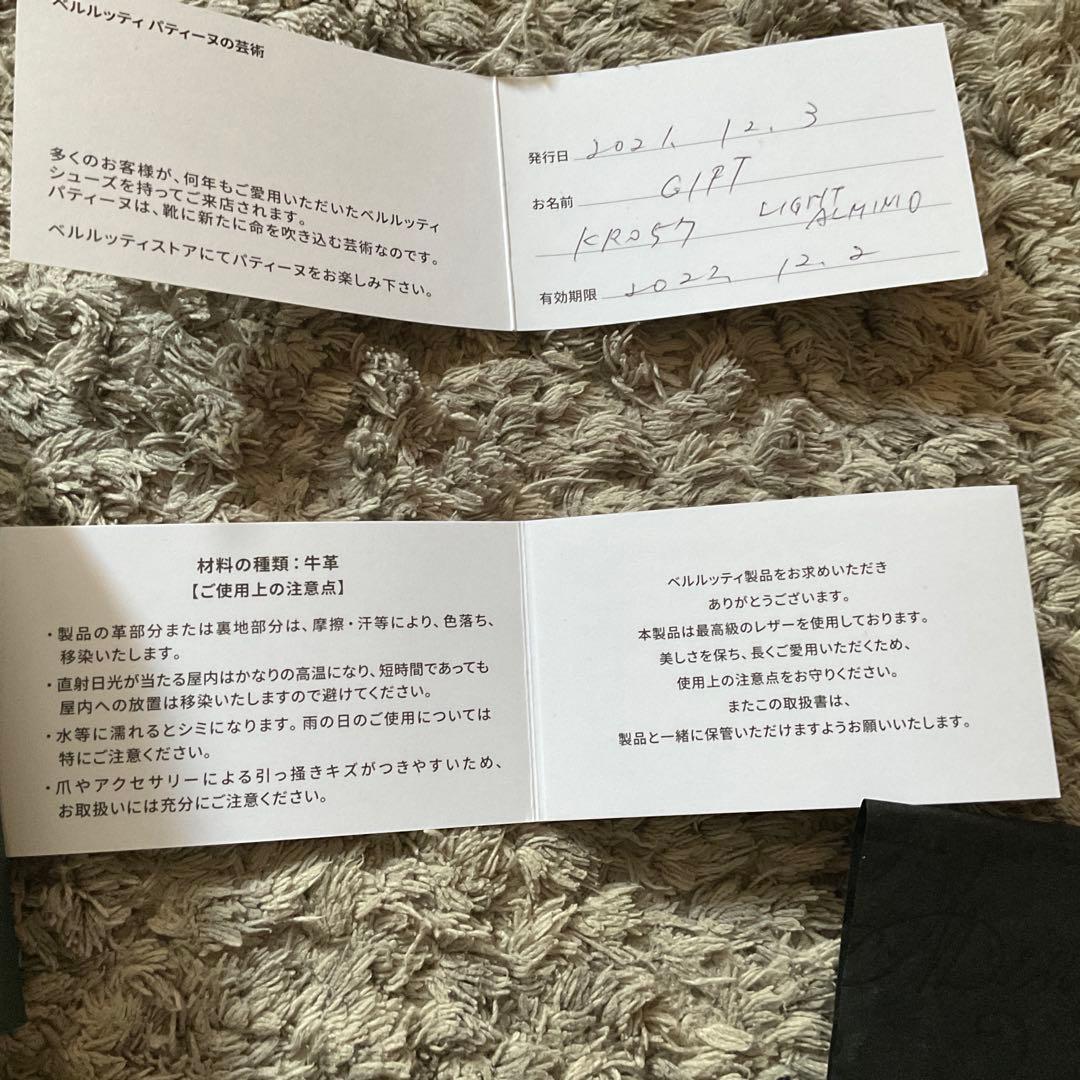 ベルルッティ パティーヌの芸術
多くのお客様が、何年もご愛用いただいたベルルッティ
シューズを持ってご来店されます。
パティーヌは、靴に新たに命を吹き込む芸術なのです。
ベルルッティストアにてパティーヌをお楽しみ下さい。
発行日 2021. 12. 3
お名前 GIFT
KR057 LIGHT
ALMINO
有効期限 2022. 12. 2
材料の種類：牛革
【ご使用上の注意点】
・製品の革部分または裏地部分は、摩擦・汗等により、色落ち、
移染いたします。
・直射日光が当たる屋内はかなりの高温になり、短時間であっても
屋内への放置は移染いたしますので避けてください。
・水等に濡れるとシミになります。雨の日のご使用については
特にご注意ください。
・爪やアクセサリーによる引っ掻きキズがつきやすいため、
お取扱いには充分にご注意ください。
ベルルッティ製品をお求めいただき
ありがとうございます。
本製品は最高級のレザーを使用しております。
美しさを保ち、長くご愛用いただくため、
使用上の注意点をお守りください。
またこの取扱書は、
製品と一緒に保管いただけますようお願いいたします。